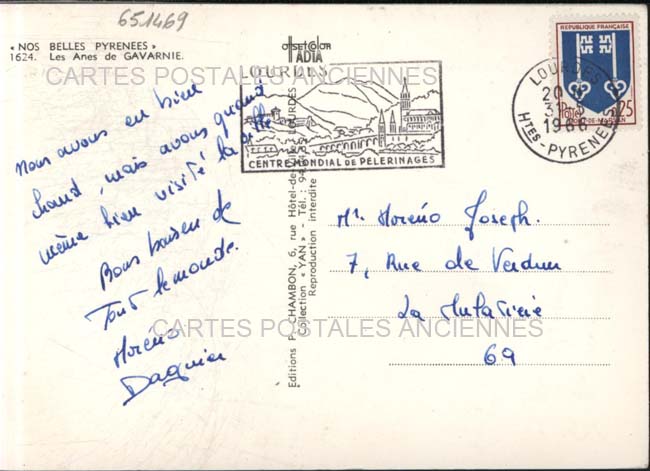 651469
« NOS BELLES PYRENEES »
1624. Les Anes de GAVARNIE.
CARTES POSTALES ANCIENNES
Nous avons eu bien
chaud, mais avons quand
même bien visité la ville
Bons baisers de
Tout le monde.
Moréno
Daguier
OFFSET COLOR
LOURDES
CENTRE MONDIAL DE PÈLERINAGES
Editions P. CHAMBON, 6, rue Hôtel-de-
LOURDES
Collection « YAN » - Tél. : 94
Reproduction interdite
REPUBLIQUE FRANÇAISE
Postes
0,25
MONT-DE-MARSAN
LOURDES
20
31-8
1966
HTES-PYRENEES
Mr. Moréno Joseph.
7, Rue de Verdun
La Mulatière
69
CARTES POSTALES ANCIENNES